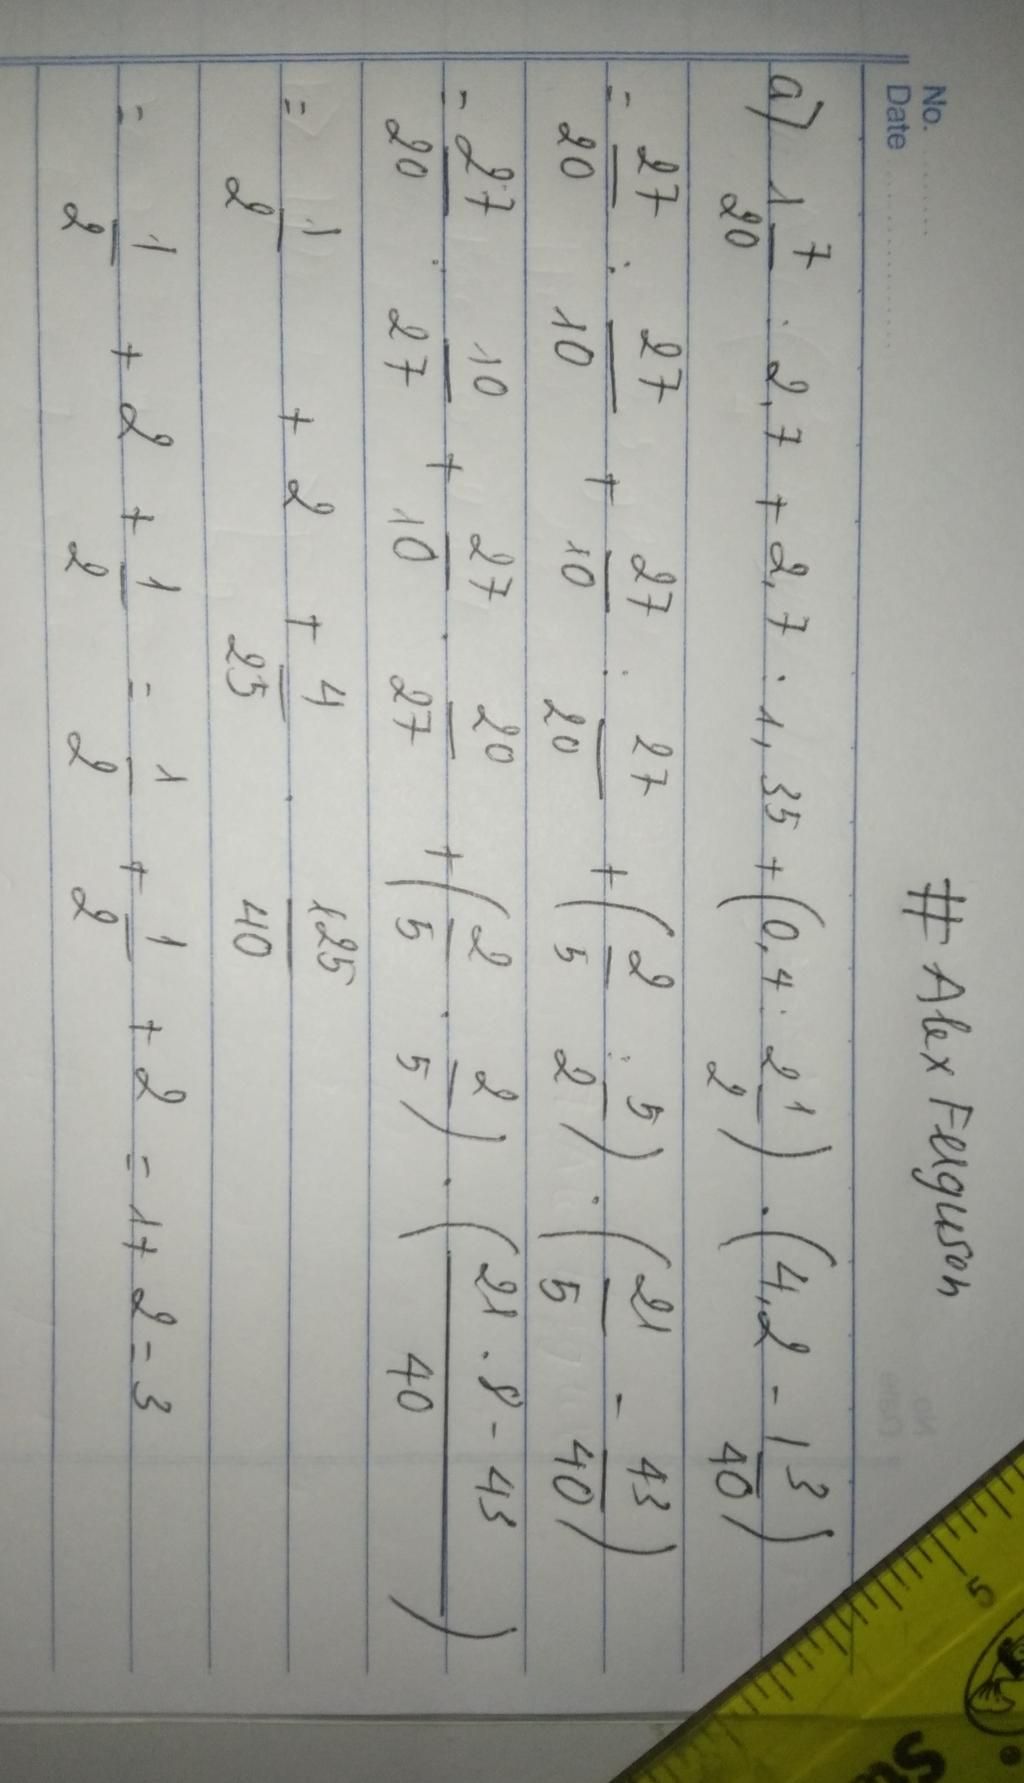 No.
Date
# Alex Ferguson
a) 1 7/20 : 2,7 + 2,7 : 1,35 + (0,4 : 2 1/2) . (4,2 - 1 3/40)
= 27/20 : 27/10 + 27/10 : 27/20 + (2/5 : 5/2) . (21/5 - 43/40)
= 27/20 . 10/27 + 27/10 . 20/27 + (2/5 . 2/5) . (21.8-43/40)
= 1/2 + 2 + 4/25 . 125/40
= 1/2 + 2 + 1/2 = 1/2 + 1/2 + 2 = 1+2=3
5